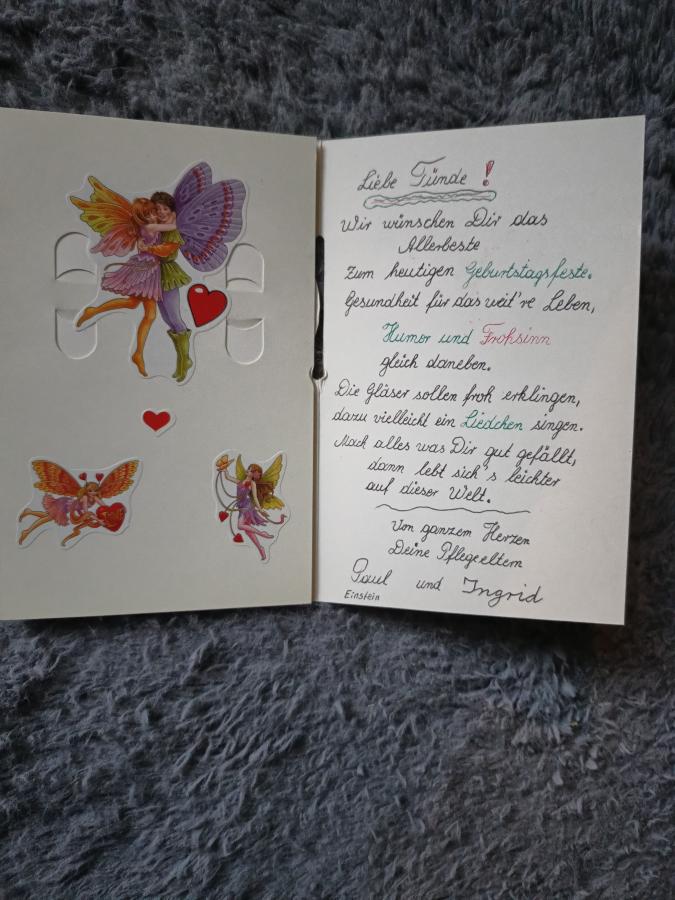 Liebe Tünde !
Wir wünschen Dir das
Allerbeste
zum heutigen Geburtstagsfeste.
Gesundheit für das weit're Leben,
Humor und Frohsinn
gleich daneben.
Die Gläser sollen froh erklingen,
dazu vielleicht ein Liedchen singen.
Mach alles was Dir gut gefällt,
dann lebt sich's leichter
auf dieser Welt.
Von ganzem Herzen
Deine Pflegeeltern
Paul und Ingrid
Einstein